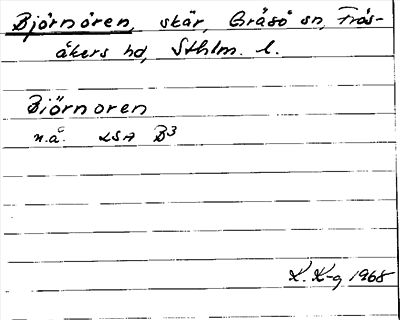 Björnören, skär, Gräsö sn, Frös-
åkers hd, Sthlm. l.
Biörnoren
n.å. LSA B3
K. K-g 1968